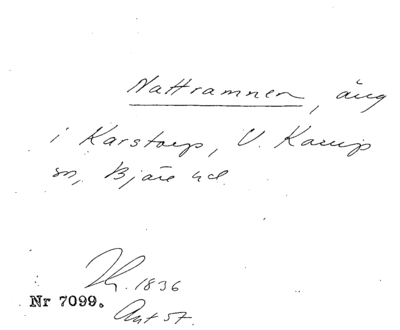 Nattramnen, äng
i Karstorp, V. Karup
sn, Bjäre hd.
1836
Nr 7099.
Ant 57.